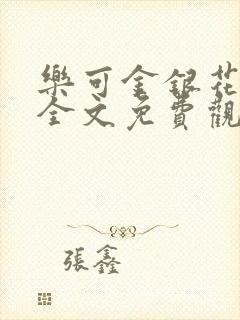 樂可金銀花
全文免費觀
張鑫